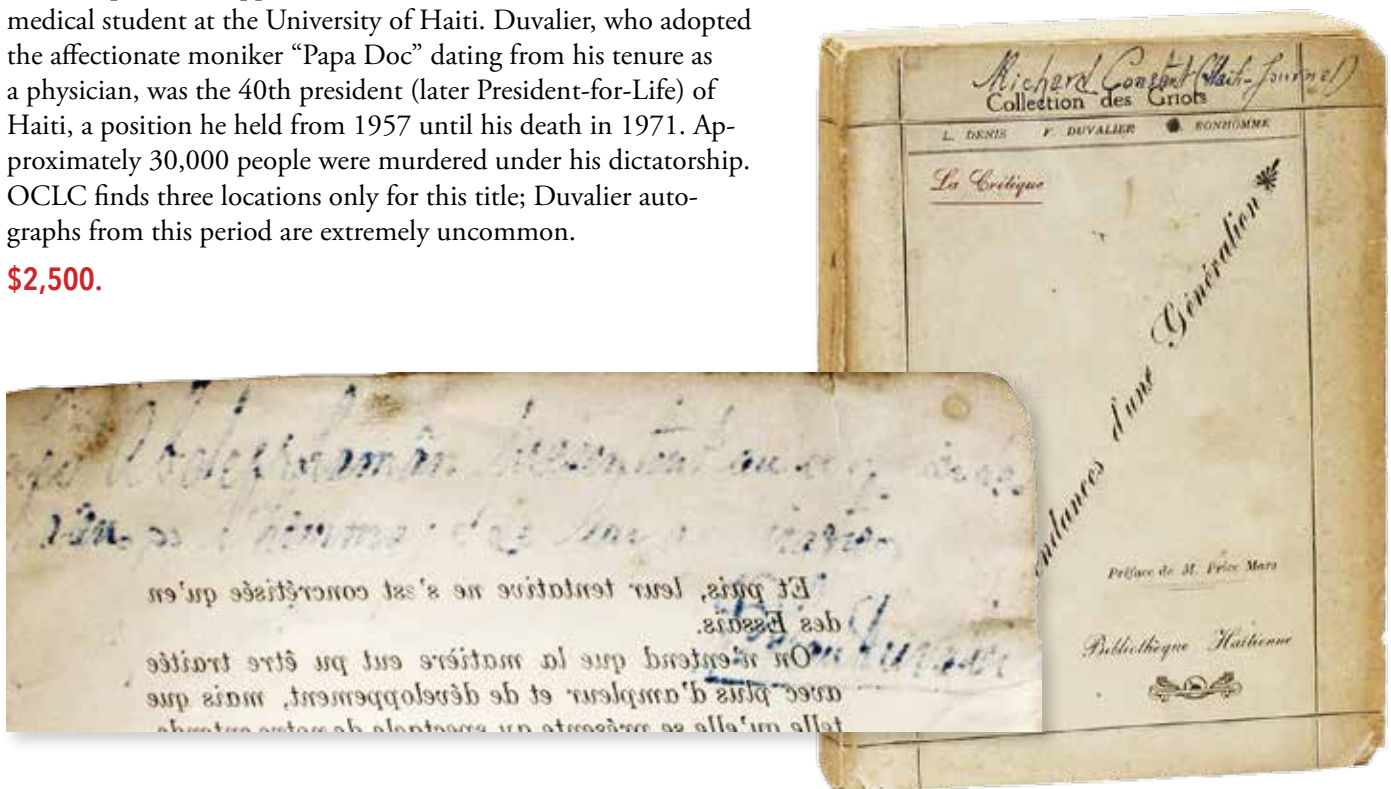 medical student at the University of Haiti. Duvalier, who adopted
the affectionate moniker “Papa Doc” dating from his tenure as
a physician, was the 40th president (later President-for-Life) of
Haiti, a position he held from 1957 until his death in 1971. Ap-
proximately 30,000 people were murdered under his dictatorship.
OCLC finds three locations only for this title; Duvalier auto-
graphs from this period are extremely uncommon.
$2,500.
Collection des Griots
L. DENIS F. DUVALIER BONHOMME
La Critique
ndances d'une Génération
Préface de M. Price Mars
Bibliothèque Haïtienne
Et puis, leur tentative ne s'est concrétisée qu'en
des Essais.
On n'entend que la matière eut pu être traitée
avec plus d'ampleur et de développement, mais que
telle qu'elle se présente au spectacle de notre entende